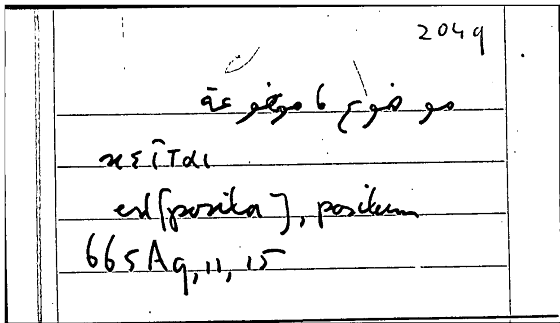 2049
موضوع، موضوعة
κεῖται
est [posita], positum
665A9,11,15